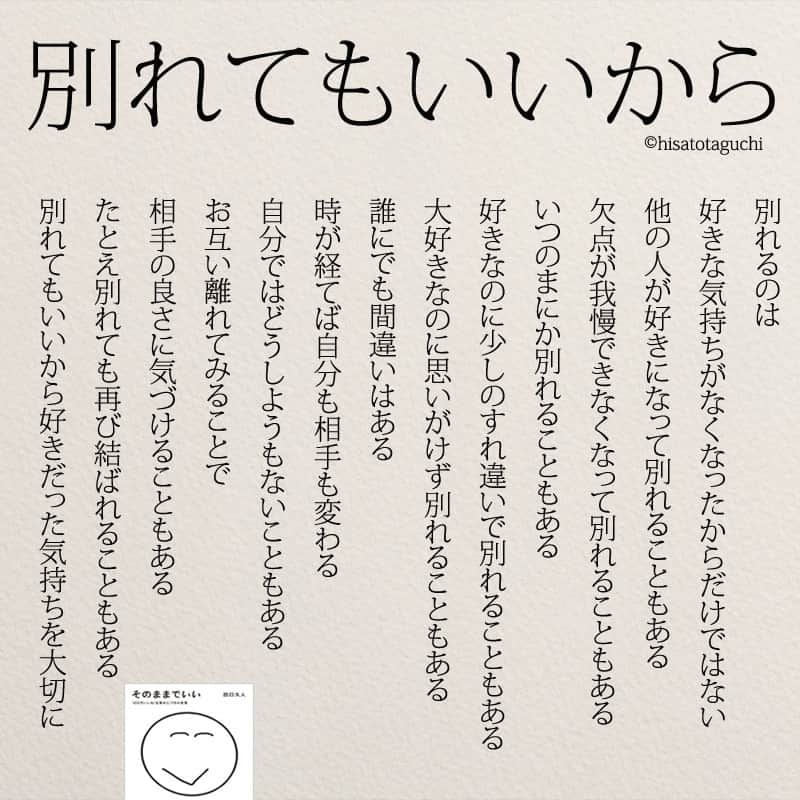 別れてもいいから
©hisatotaguchi
別れるのは
好きな気持ちがなくなったからだけではない
他の人が好きになって別れることもある
欠点が我慢できなくなって別れることもある
いつのまにか別れることもある
好きなのに少しのすれ違いで別れることもある
大好きなのに思いがけず別れることもある
誰にでも間違いはある
時が経てば自分も相手も変わる
自分ではどうしようもないこともある
お互い離れてみることで
相手の良さに気づけることもある
たとえ別れても再び結ばれることもある
別れてもいいから好きだった気持ちを大切に
そのままでいい
田口久人